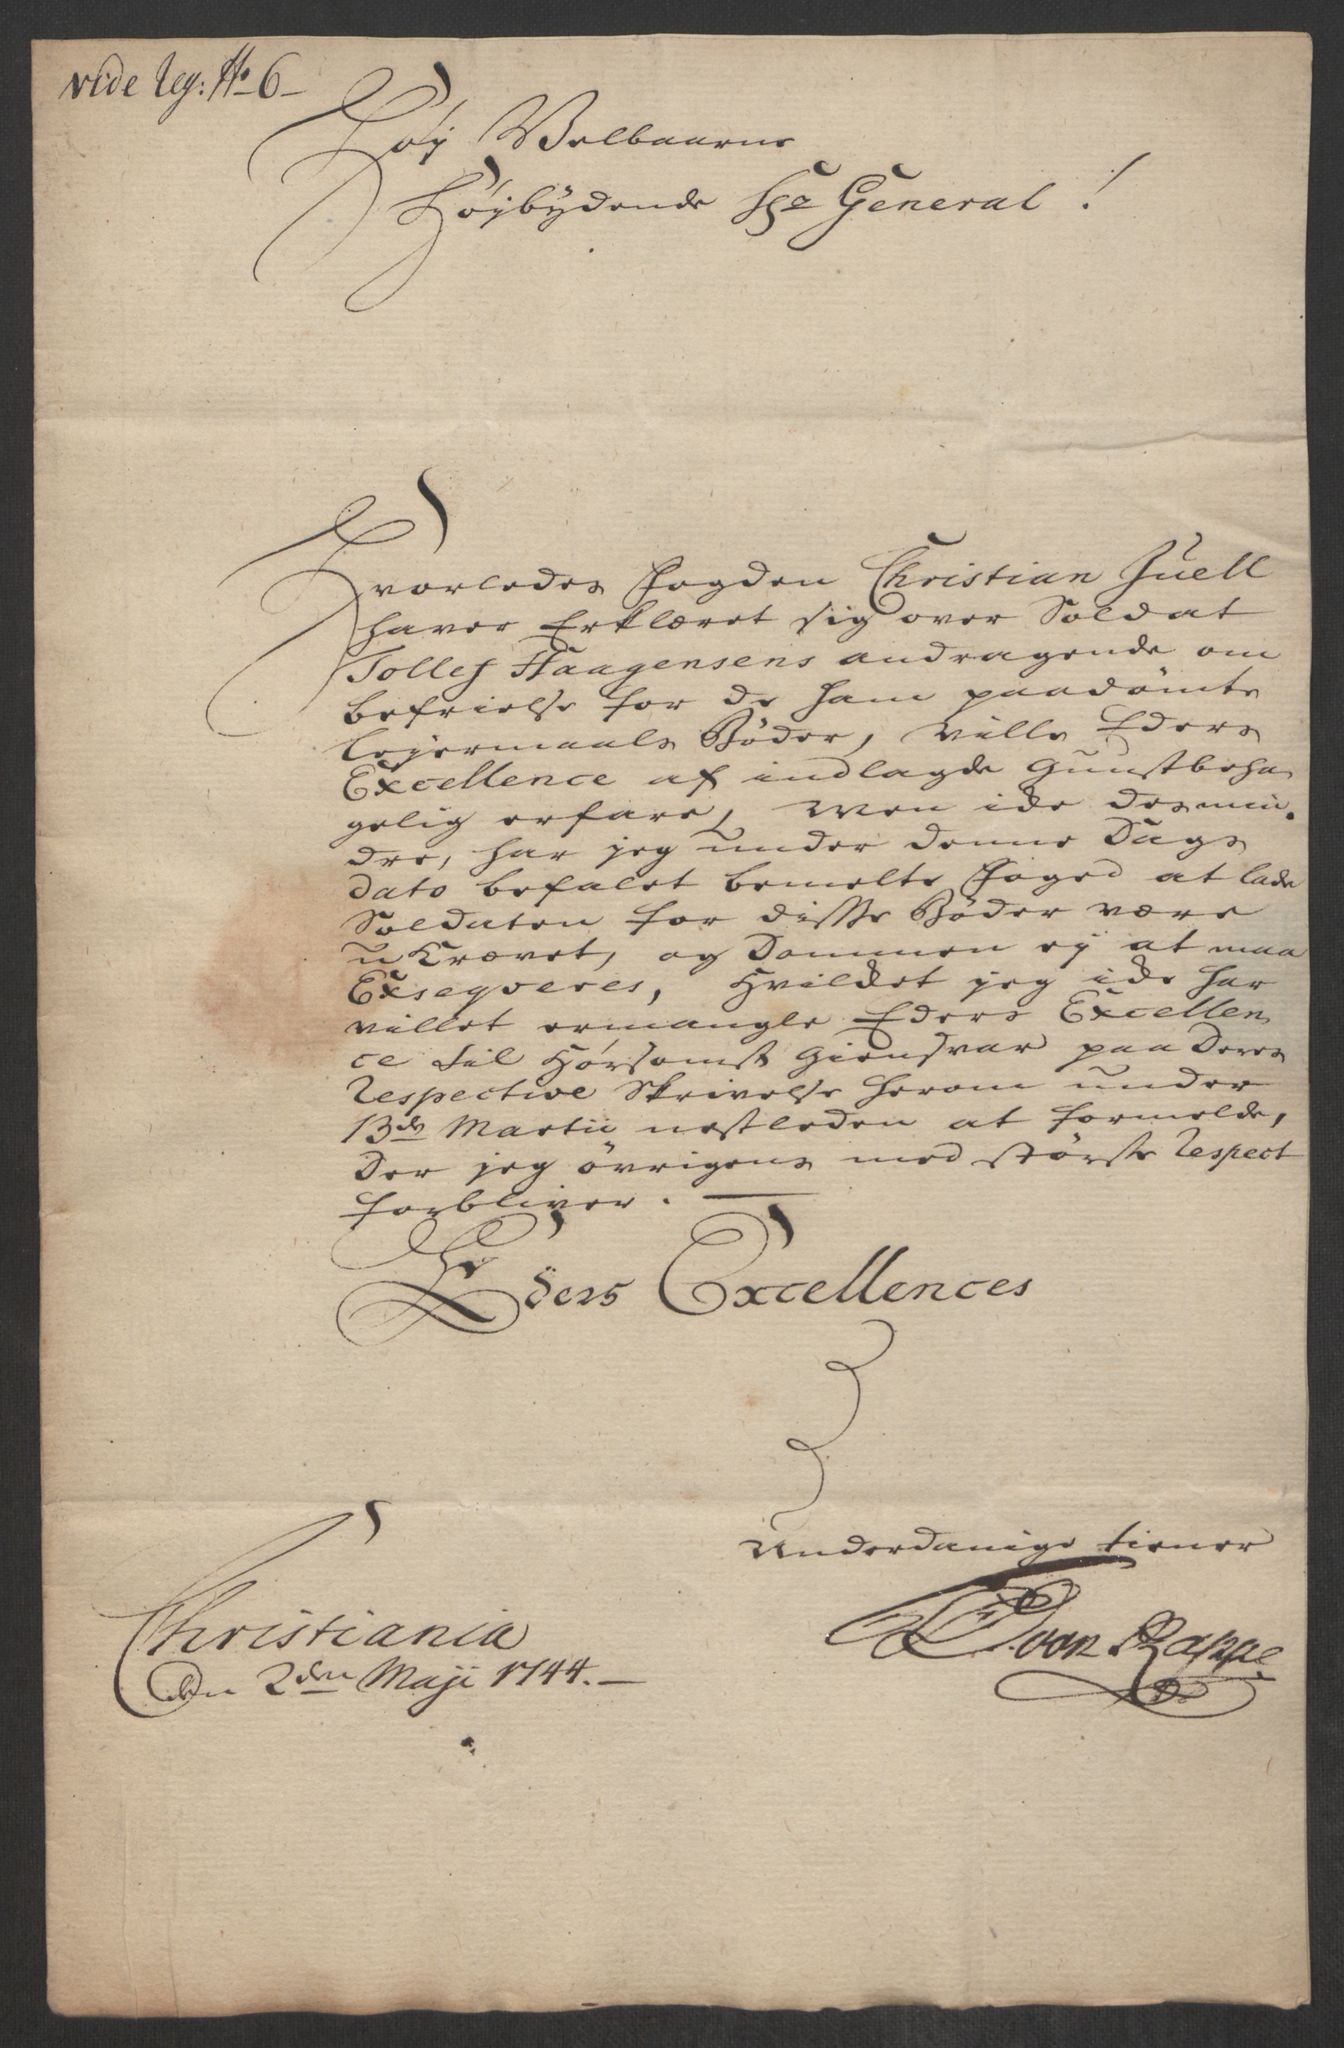 vide Reg: No 6
Høy Velbaarne
Høÿbÿdende Hr General!
Hvorledes Fogden Christian Juell
haver Erklæret sig over Soldat
Tollef Haagensens andragende om
befrielse for de ham paadömte
Leyermaals Böder, ville Eders
Excellence af indlagde Gunstbeha
gelig erfare, Men icke desmin
dre, har jeg under denne Dags
dato befalet bemelte Foged at lade
Soldaten for disse Böder være
u-Krævet, og Dommen ey at maa
Exseqveres, Hvilcket jeg icke har
villet ermangle Eders Excellen
ce til Hörsomst Giensvar paa Deres
Respective Skrivelse herom under
13de Martii nestleden at formelde,
Der jeg övrigens med störste Respect
forbliver.
Eders Excellences
Underdanige tiener
von Rappe
Christiania
den 2den Maji 1744.